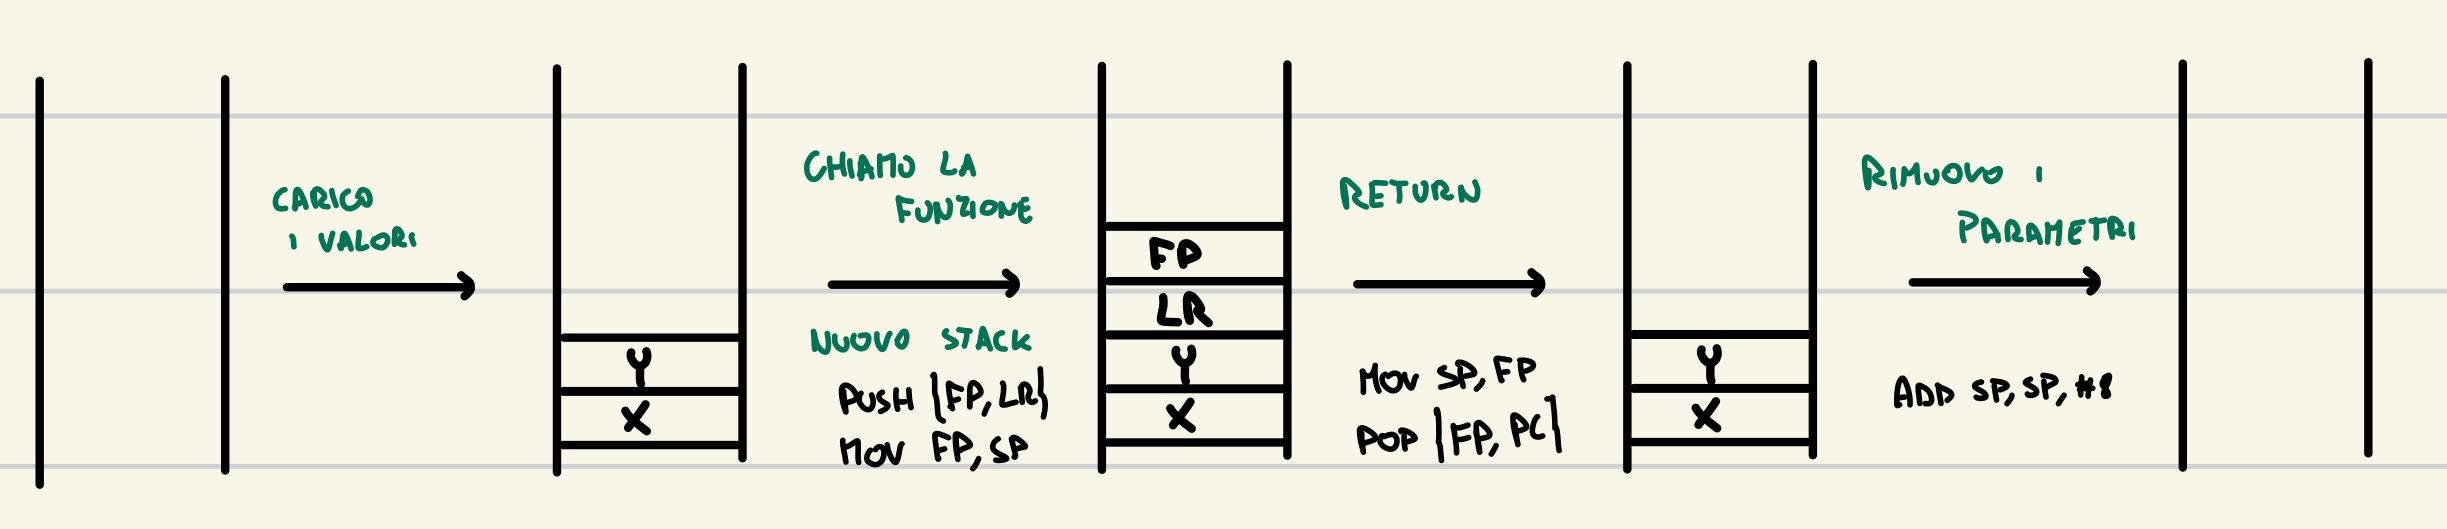 CARICO
I VALORI
Y
X
CHIAMO LA
FUNZIONE
NUOVO STACK
PUSH {FP, LR}
MOV FP, SP
FP
LR
Y
X
RETURN
MOV SP, FP
POP {FP, PC}
Y
X
RIMUOVO I
PARAMETRI
ADD SP, SP, #8